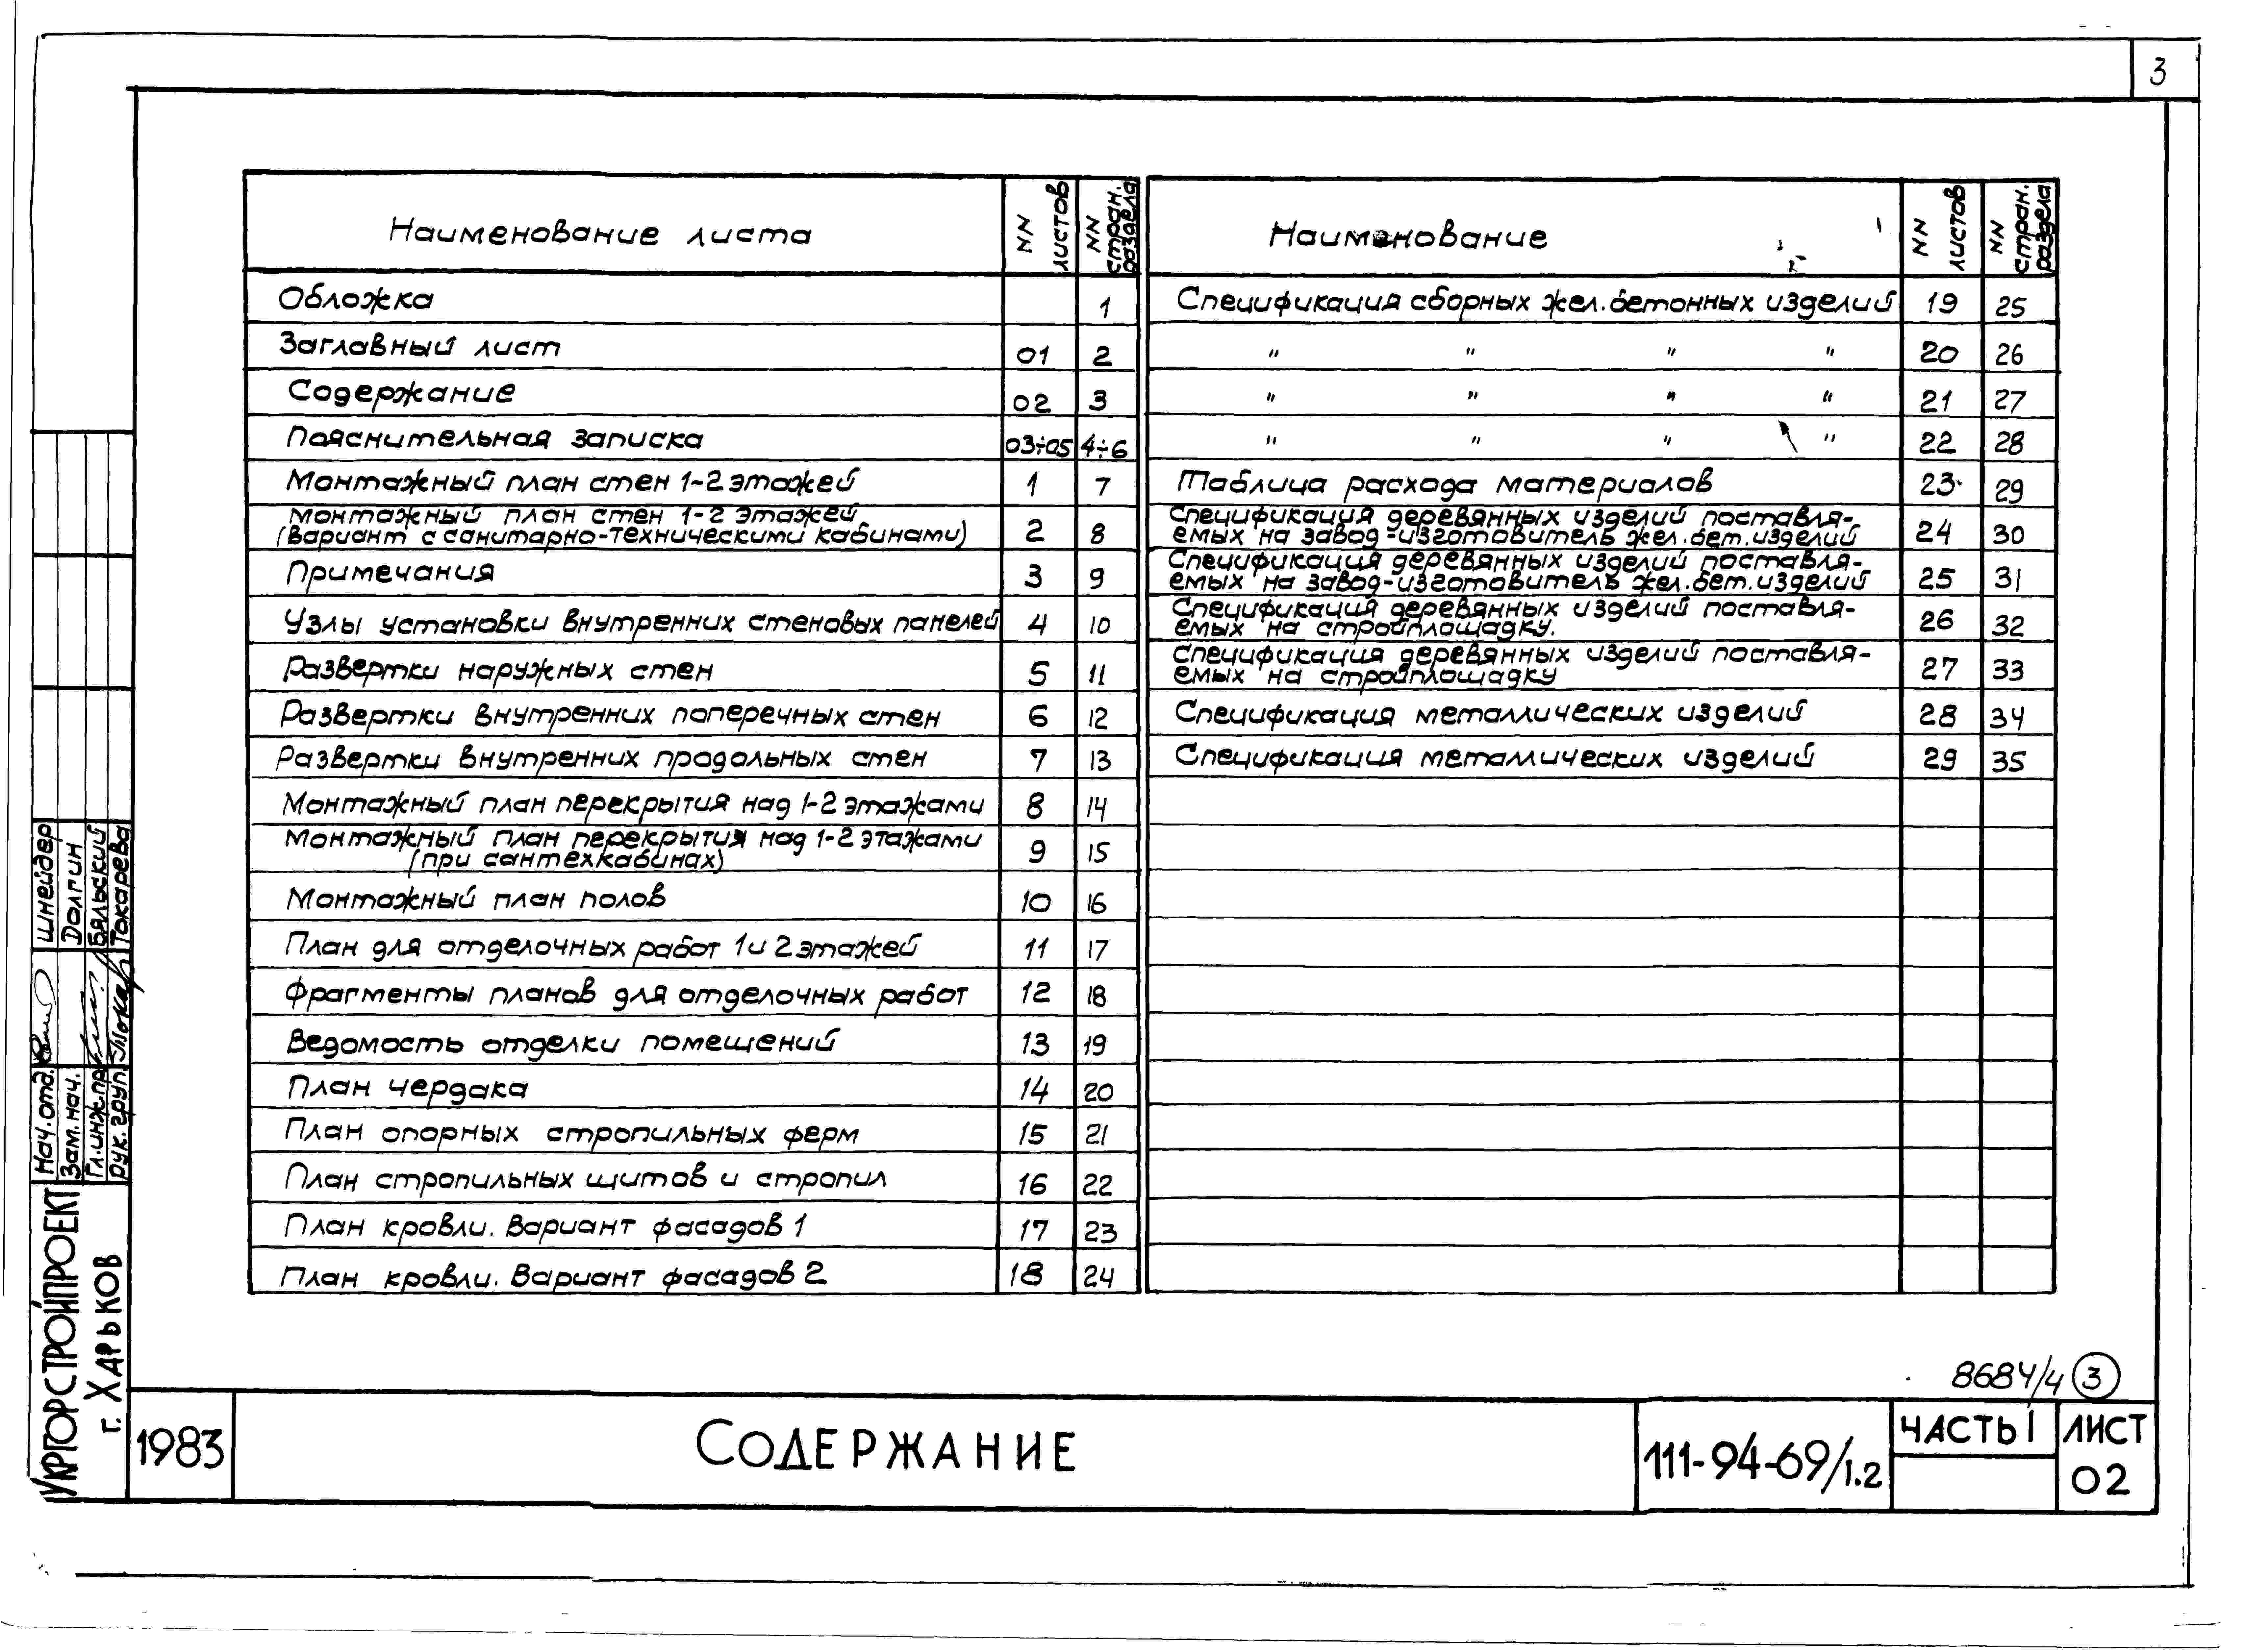 3
Наименование листа NN листов NN стран. раздела
Обложка 1
Заглавный лист 01 2
Содержание 02 3
Пояснительная записка 03÷05 4÷6
Монтажный план стен 1-2 этажей 1 7
Монтажный план стен 1-2 этажей
(Вариант с санитарно-техническими кабинами) 2 8
Примечания 3 9
Узлы установки внутренних стеновых панелей 4 10
Развертки наружных стен 5 11
Развертки внутренних поперечных стен 6 12
Развертки внутренних продольных стен 7 13
Монтажный план перекрытия над 1-2 этажами 8 14
Монтажный план перекрытия над 1-2 этажами
(при сантехкабинах) 9 15
Монтажный план полов 10 16
План для отделочных работ 1 и 2 этажей 11 17
Фрагменты планов для отделочных работ 12 18
Ведомость отделки помещений 13 19
План чердака 14 20
План опорных стропильных ферм 15 21
План стропильных щитов и стропил 16 22
План кровли. Вариант фасадов 1 17 23
План кровли. Вариант фасадов 2 18 24
Наименование NN листов NN стран. раздела
Спецификация сборных жел.бетонных изделий 19 25
" " " " 20 26
" " " " 21 27
" " " " 22 28
Таблица расхода материалов 23 29
Спецификация деревянных изделий поставля-
емых на завод-изготовитель жел.бет.изделий 24 30
Спецификация деревянных изделий поставля-
емых на завод-изготовитель жел.бет.изделий 25 31
Спецификация деревянных изделий поставля-
емых на стройплощадку. 26 32
Спецификация деревянных изделий поставля-
емых на стройплощадку 27 33
Спецификация металлических изделий 28 34
Спецификация металлических изделий 29 35
Нач.отд. Шнейдер
Зам.нач. Долгин
Гл.инж.пр. Бяльский
Рук.груп. Токарева
УКРГОРСТРОЙПРОЕКТ
г. ХАРЬКОВ
8684/4 3
1983
СОДЕРЖАНИЕ
111-94-69/1.2
ЧАСТЬ 1
ЛИСТ
02